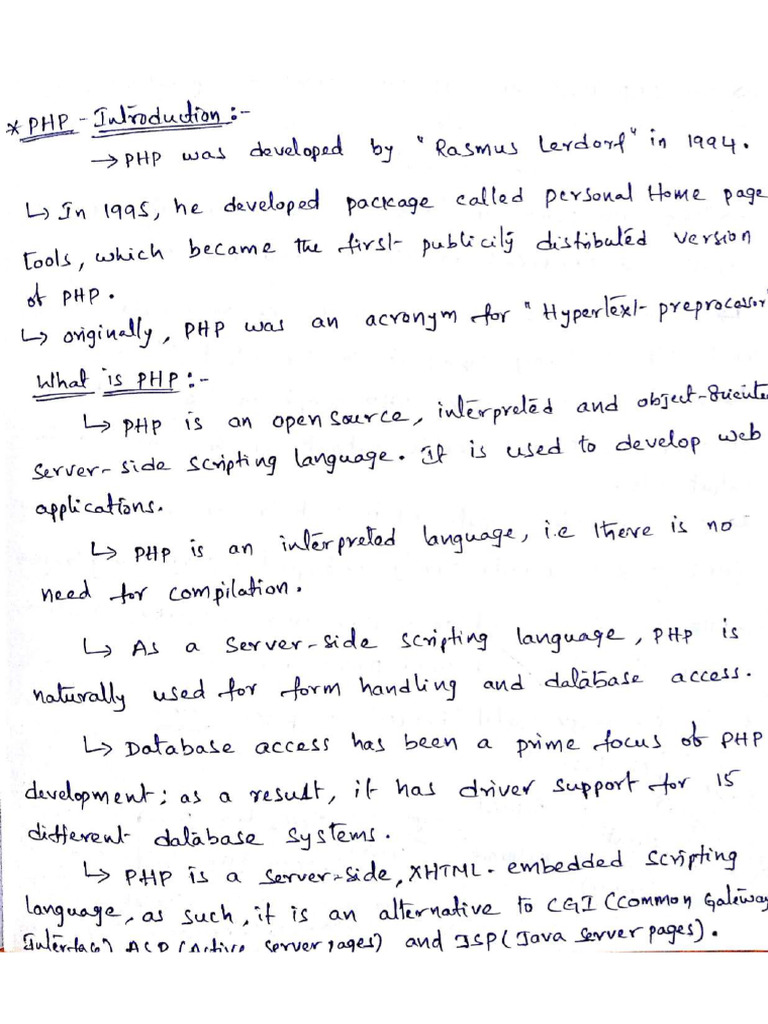 * PHP - Introduction :-
→ PHP was developed by "Rasmus Lerdorf" in 1994.
↳ In 1995, he developed package called personal Home page
tools, which became the first publicily distributed version
of PHP.
↳ originally, PHP was an acronym for "Hypertext preprocessor"
What is PHP :-
↳ PHP is an open source, interpreted and object-oriented
Server-side scripting language. It is used to develop web
applications.
↳ PHP is an interpreted language, i.e there is no
need for compilation.
↳ As a server-side scripting language, PHP is
naturally used for form handling and database access.
↳ Database access has been a prime focus of PHP
development; as a result, it has driver support for 15
different database systems.
↳ PHP is a server-side, XHTML-embedded scripting
language, as such, it is an alternative to CGI (Common Gateway
Interface) ASP (Active server pages) and JSP (Java server pages).